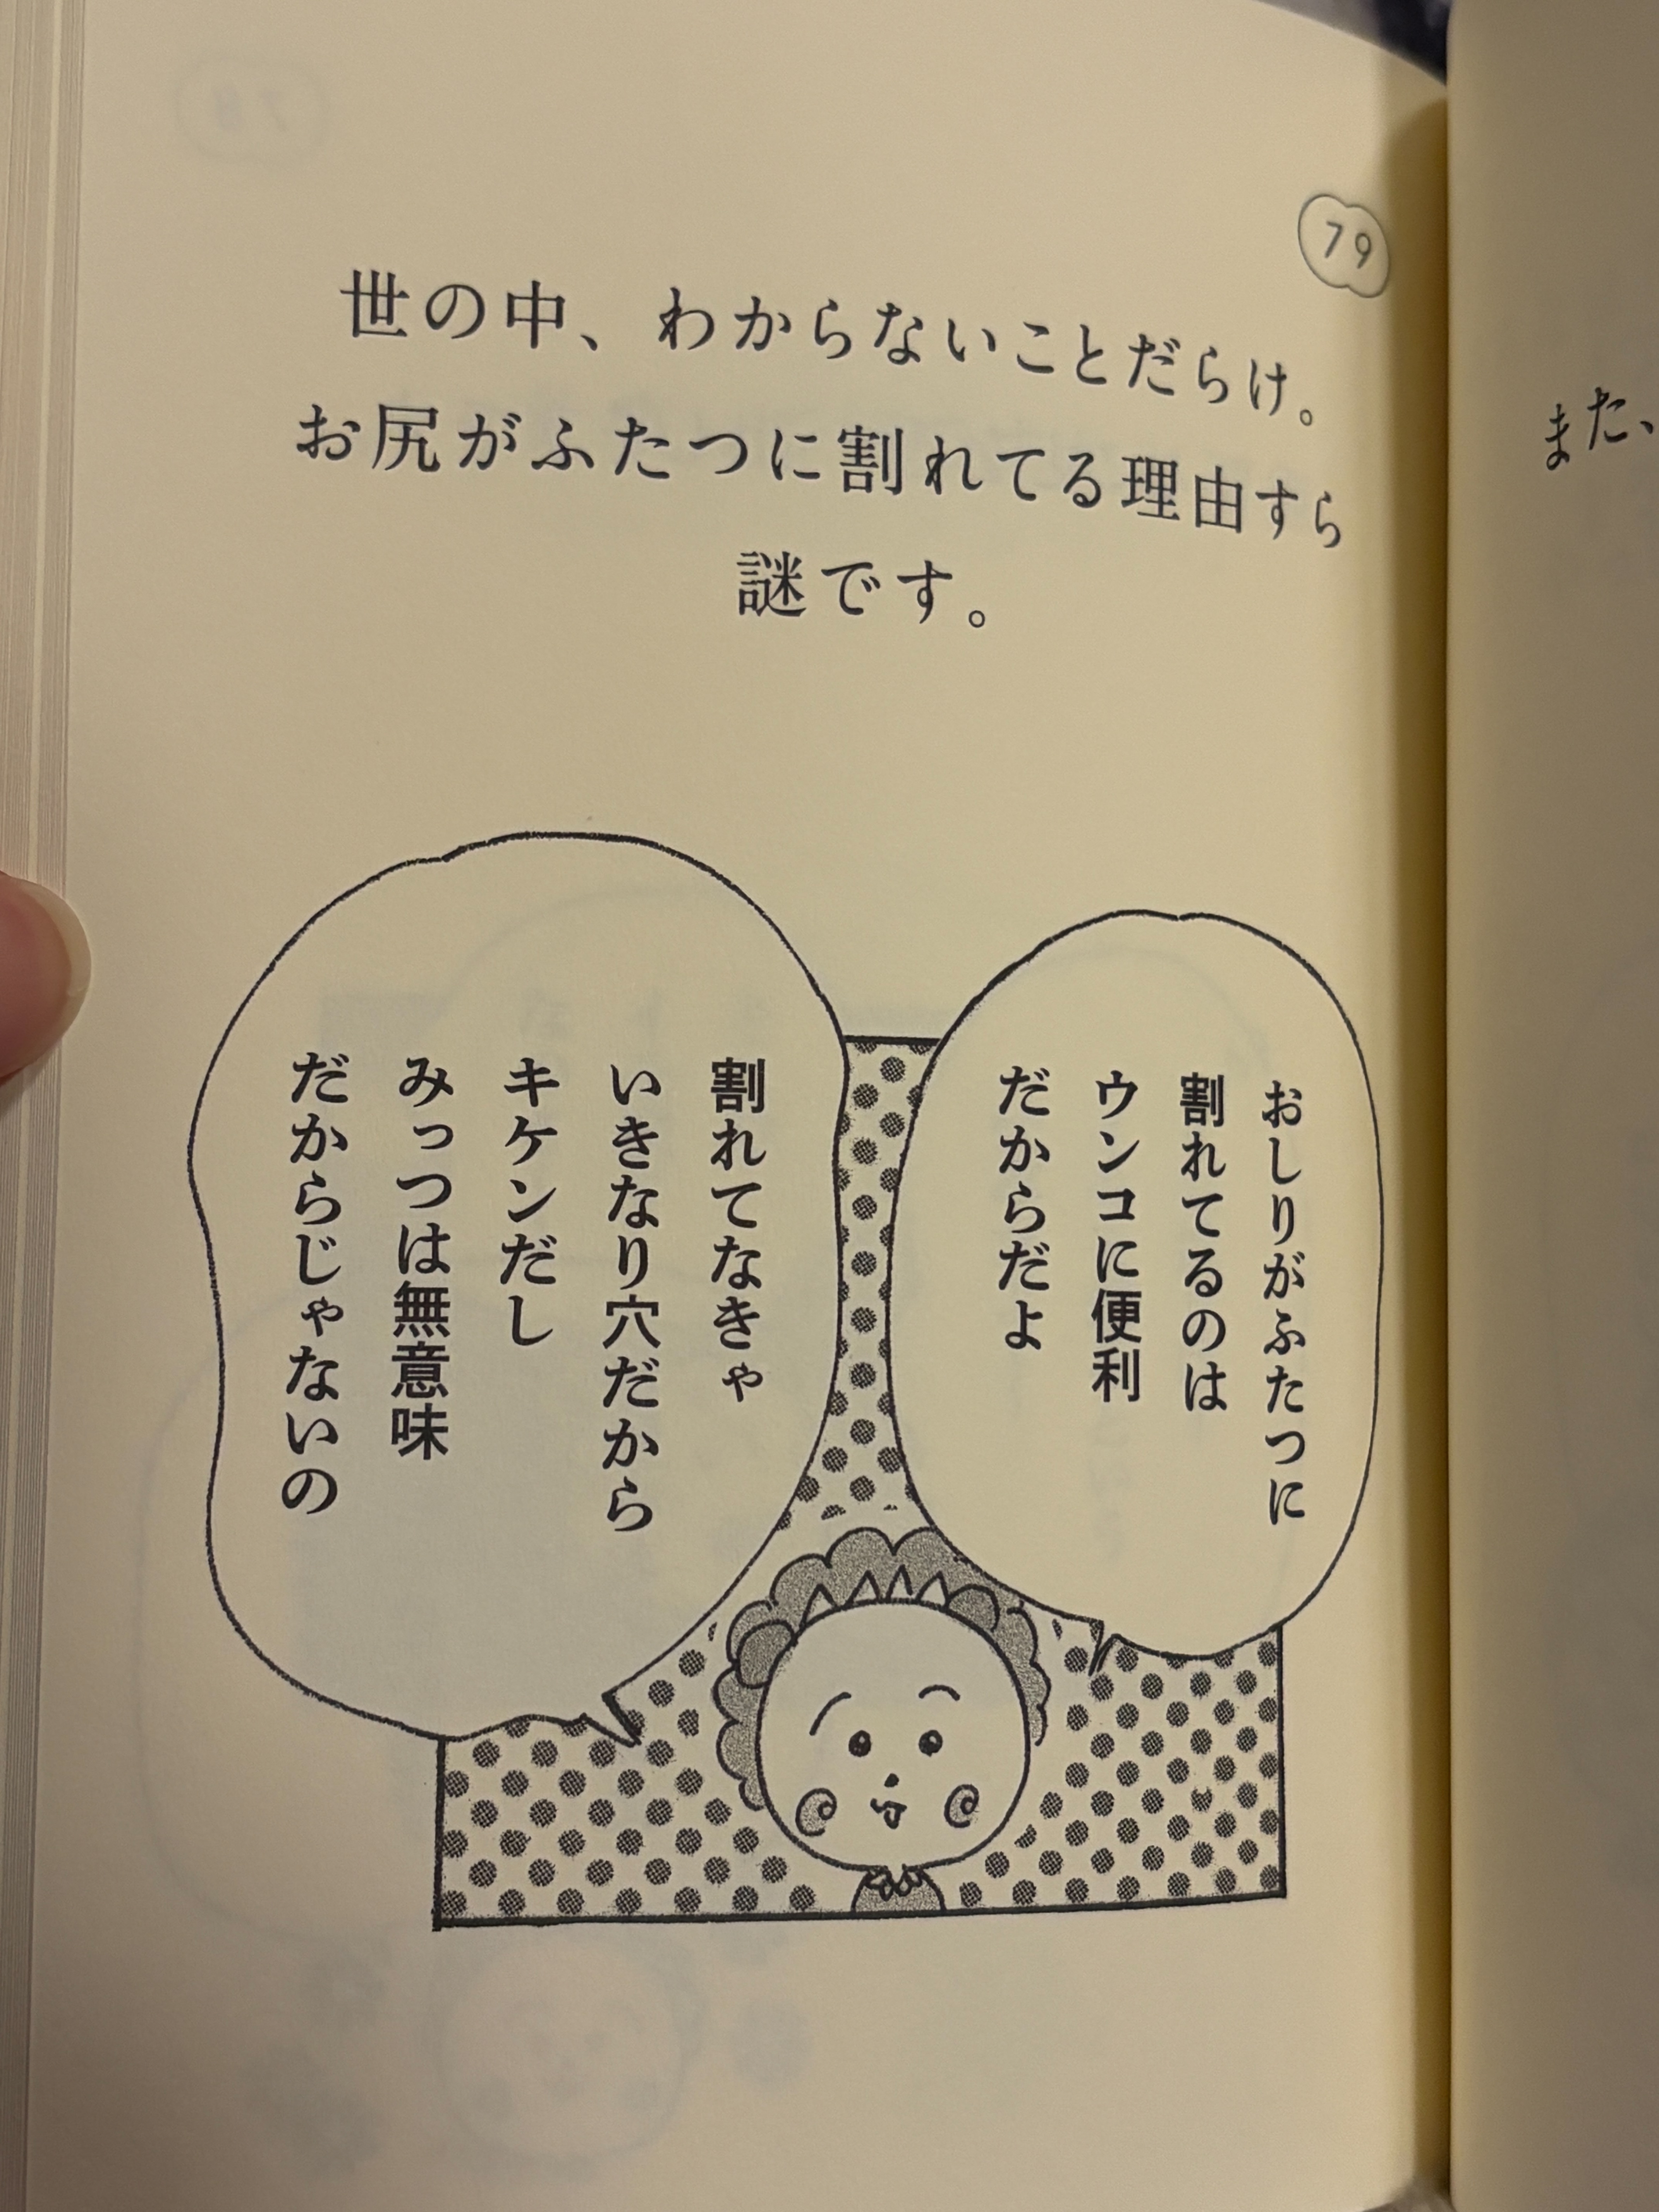 79
世の中、わからないことだらけ。
お尻がふたつに割れてる理由すら
謎です。
おしりがふたつに
割れてるのは
ウンコに便利
だからだよ
割れてなきゃ
いきなり穴だから
キケンだし
みっつは無意味
だからじゃないの
また、